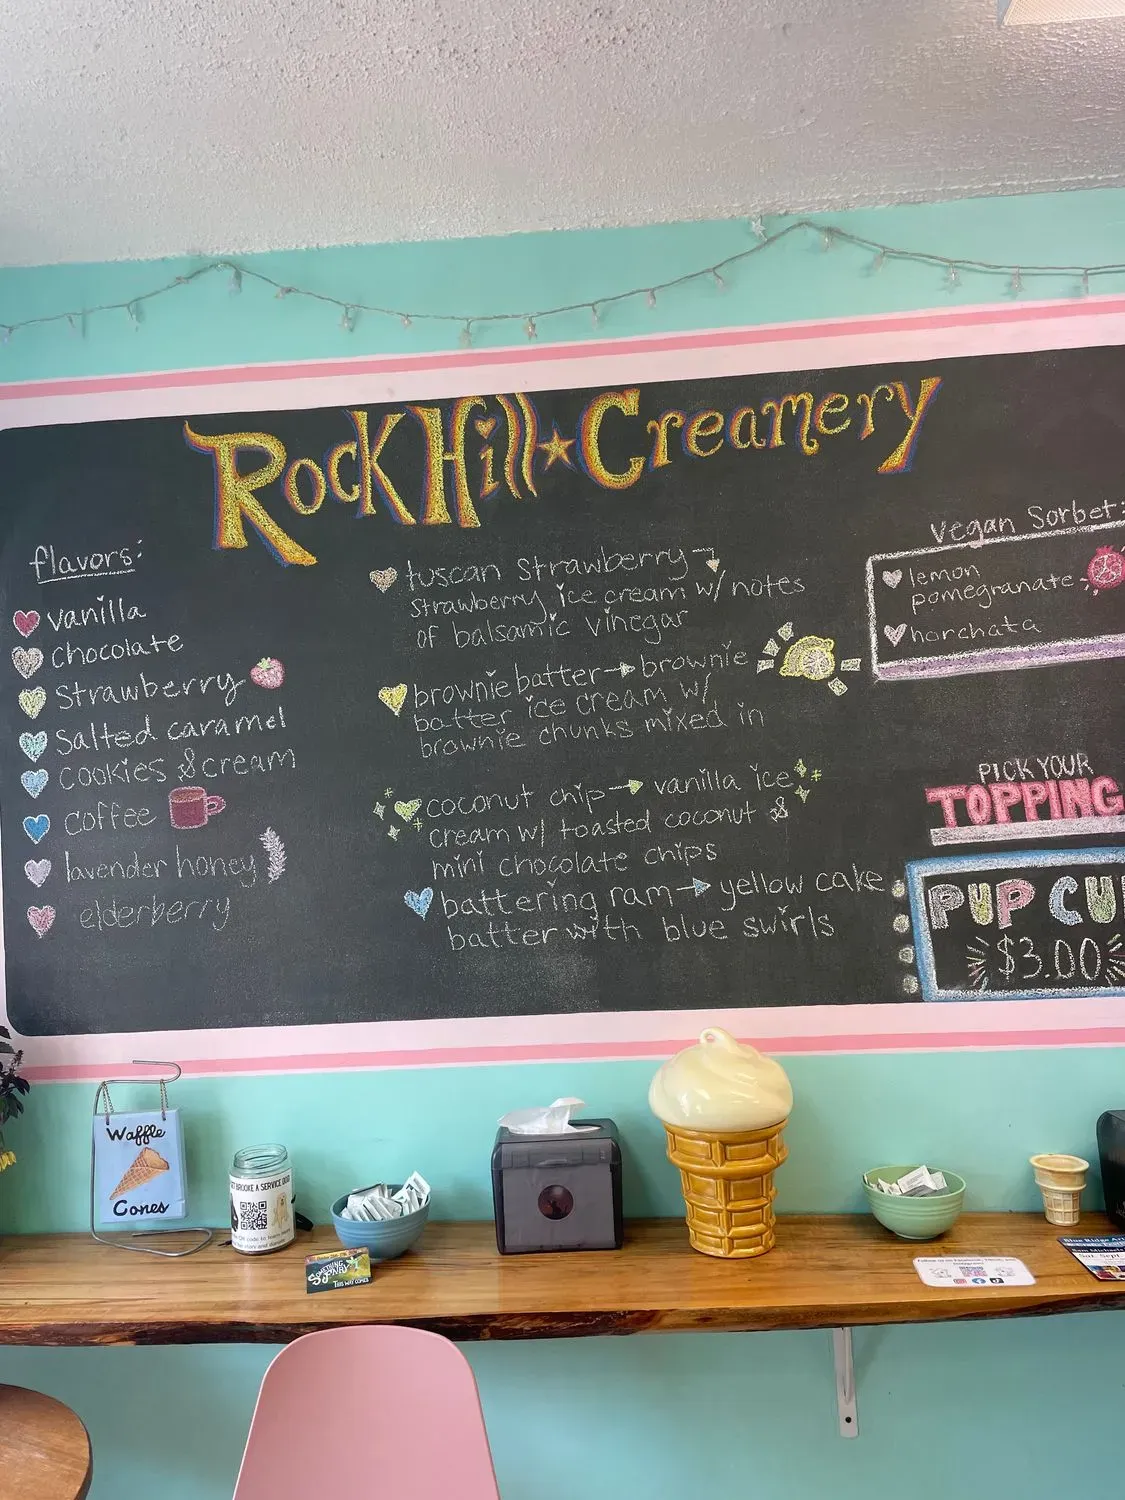 Rock Hill Creamery
flavors:
vanilla
chocolate
Strawberry
Salted caramel
cookies & cream
coffee
lavender honey
elderberry
tuscan Strawberry →
Strawberry ice cream w/ notes
of balsamic vinegar
brownie batter → brownie
batter ice cream w/
brownie chunks mixed in
coconut chip → vanilla ice
cream w/ toasted coconut &
mini chocolate chips
battering ram → yellow cake
batter with blue swirls
Vegan Sorbet:
lemon
pomegranate
horchata
PICK YOUR
TOPPING
PUP CU
$3.00
Waffle
Cones
BROOKE A SERVICE DOG
SOMETHING
THIS WAY COMES
Blue Ridge